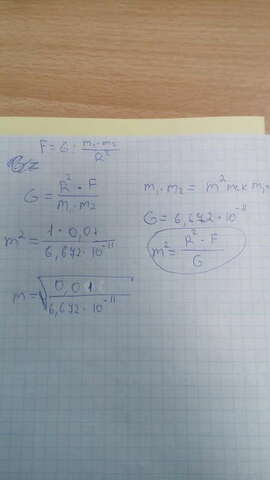 F = G · m₁·m₂ / R²
G = R² · F / m₁ · m₂
m² = 1 · 0,01 / 6,672 · 10⁻¹¹
m = √ 0,01 / 6,672 · 10⁻¹¹
m₁ · m₂ = m² тк m₁
G = 6,672 · 10⁻¹¹
m² = R² · F / G